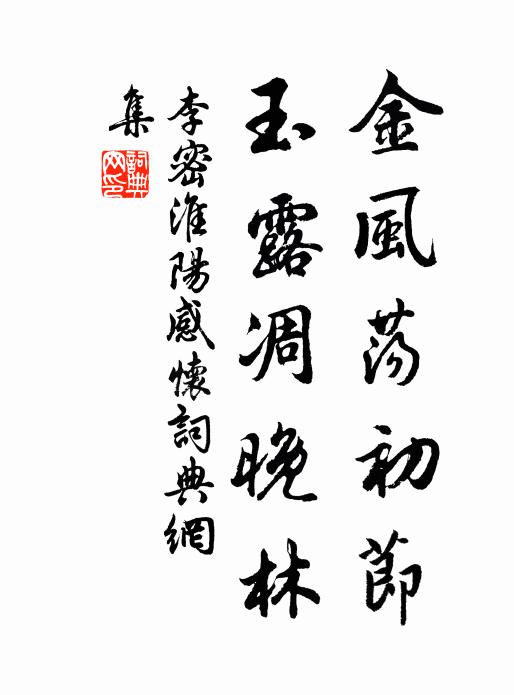 金風蕩初節
玉露凋晚林
李密淮陽感懷詞典網
集
詞典
网印